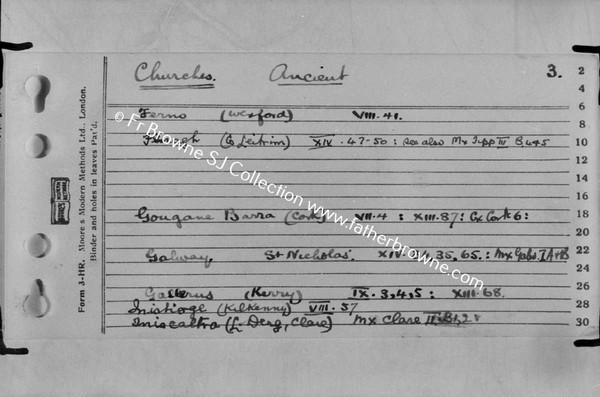 Churches. Ancient 3.
Ferns (Wexford) VIII. 41.
(Co Leitrim) XIV. 47-50: see also Mx Supp III B445
Gougane Barra (Cork) VII. 4 : XIII. 87: Cx Cork 6:
Galway, St Nicholas. XIV. 35. 65. : Mx Galw. I A+B
Gallerus (Kerry) IX. 3,4,5 : XIII. 68.
Inistioge (Kilkenny) VIII. 57
Iniscaltra (L. Derg, Clare) Mx Clare II
2
4
6
8
10
12
14
16
18
20
22
24
26
28
30
Form 3-HR. Moore's Modern Methods Ltd., London.
Binder and holes in leaves Pat'd.
© Fr Browne SJ Collection www.fatherbrowne.com